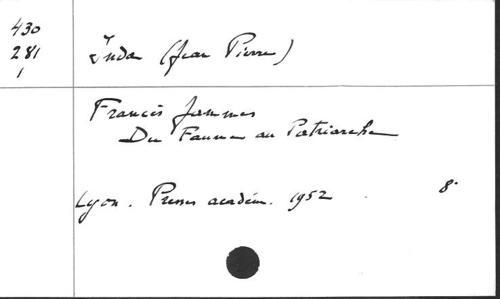 430
281
1
Inda (Jean Pierre)
Francis Jammes
Du Faune au Patriarche
Lyon. Presses académ. 1952. 8°